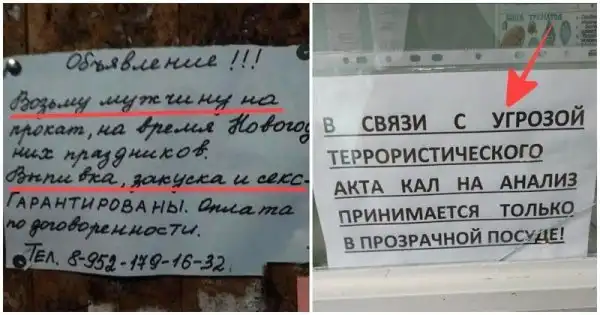 Объявление !!!
Возьму мужчину на
прокат, на время Новогод
них праздников.
Выпивка, закуска и секс-
ГАРАНТИРОВАНЫ. Оплата
по договоренности.
ТЕЛ. 8-952-179-16-32.
В СВЯЗИ С УГРОЗОЙ
ТЕРРОРИСТИЧЕСКОГО
АКТА КАЛ НА АНАЛИЗ
ПРИНИМАЕТСЯ ТОЛЬКО
В ПРОЗРАЧНОЙ ПОСУДЕ!